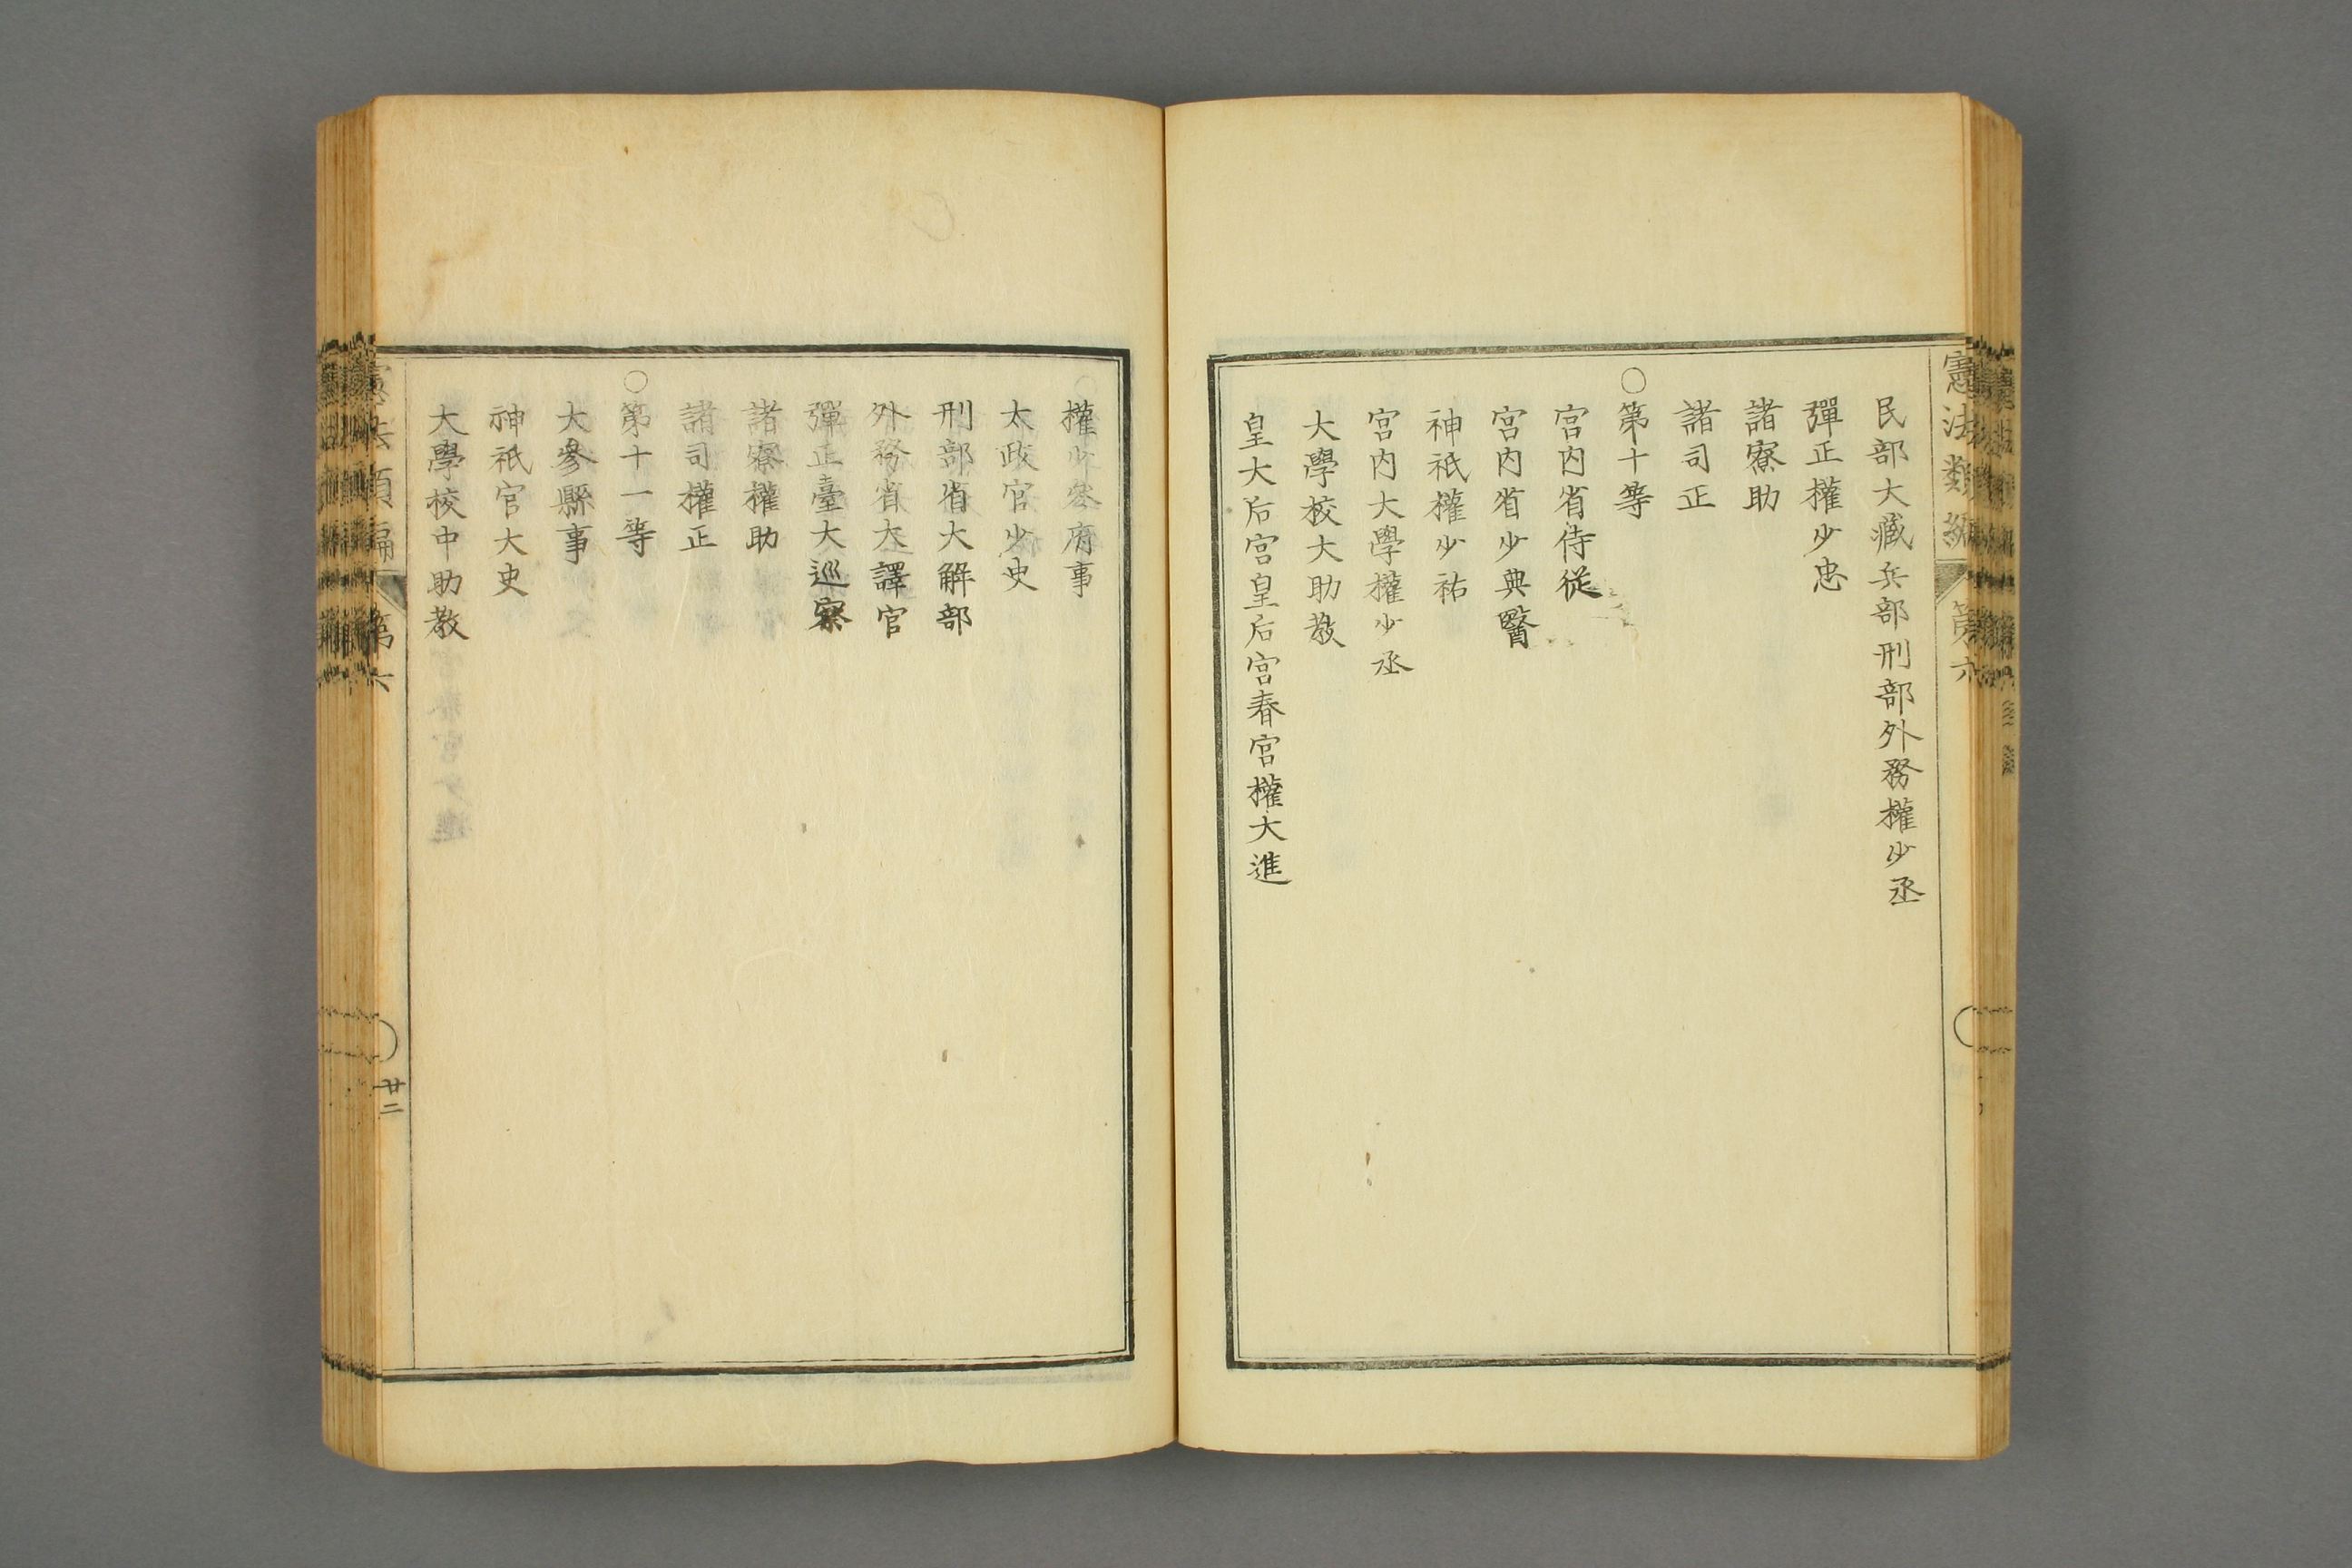 憲法類編 第六
民部大藏兵部刑部外務權少丞
彈正權少忠
諸寮助
諸司正
○第十等
宮内省侍従
宮内省少典醫
神祇權少祐
宮内大學權少丞
大學校大助教
皇太后宮皇后宮春宮權大進
權少參府事
太政官少史
刑部省大解部
外務省大譯官
彈正臺大巡察
諸寮權助
諸司權正
○第十一等
大參縣事
神祇官大史
大學校中助教
憲法類編 第六
廿二